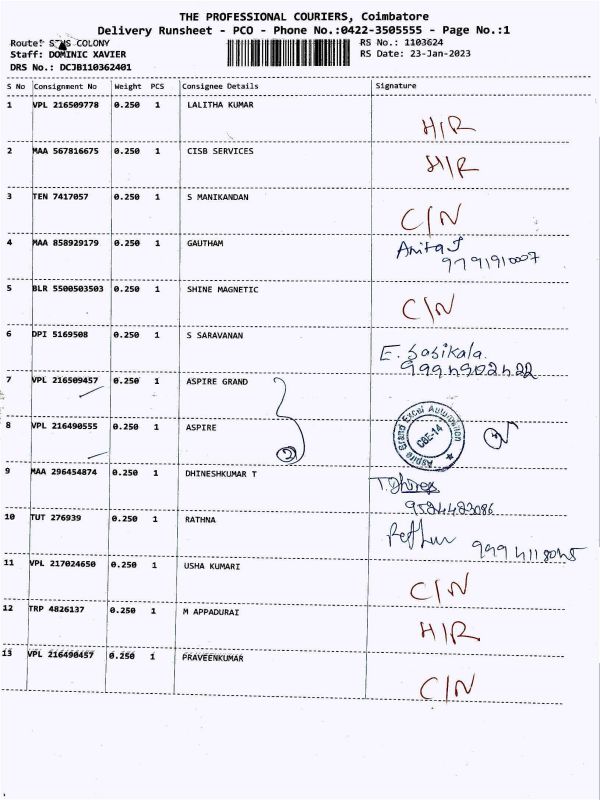 THE PROFESSIONAL COURIERS, Coimbatore
Delivery Runsheet - PCO - Phone No.:0422-3505555 - Page No.:1
Route: COLONY RS No.: 1103624
Staff: DOMINIC XAVIER RS Date: 23-Jan-2023
DRS No.: DCJB110362401
S No Consignment No Weight PCS Consignee Details Signature
1 VPL 216509778 0.250 1 LALITHA KUMAR H/R
2 MAA 567816675 0.250 1 CISB SERVICES H/R
3 TEN 7417057 0.250 1 S MANIKANDAN C/N
4 MAA 858929179 0.250 1 GAUTHAM Anita J
9791910007
5 BLR 5500503503 0.250 1 SHINE MAGNETIC C/N
6 DPI 5169508 0.250 1 S SARAVANAN E. Sasikala.
7 VPL 216509457 0.250 1 ASPIRE GRAND
8 VPL 216490555 0.250 1 ASPIRE 2 Aspire Grand Excel Automation CBE-14
9 MAA 296454874 0.250 1 DHINESHKUMAR T
9524423086
10 TUT 276939 0.250 1 RATHNA
11 VPL 217024650 0.250 1 USHA KUMARI C/N
12 TRP 4826137 0.250 1 M APPADURAI H/R
13 VPL 216490457 0.250 1 PRAVEENKUMAR C/N